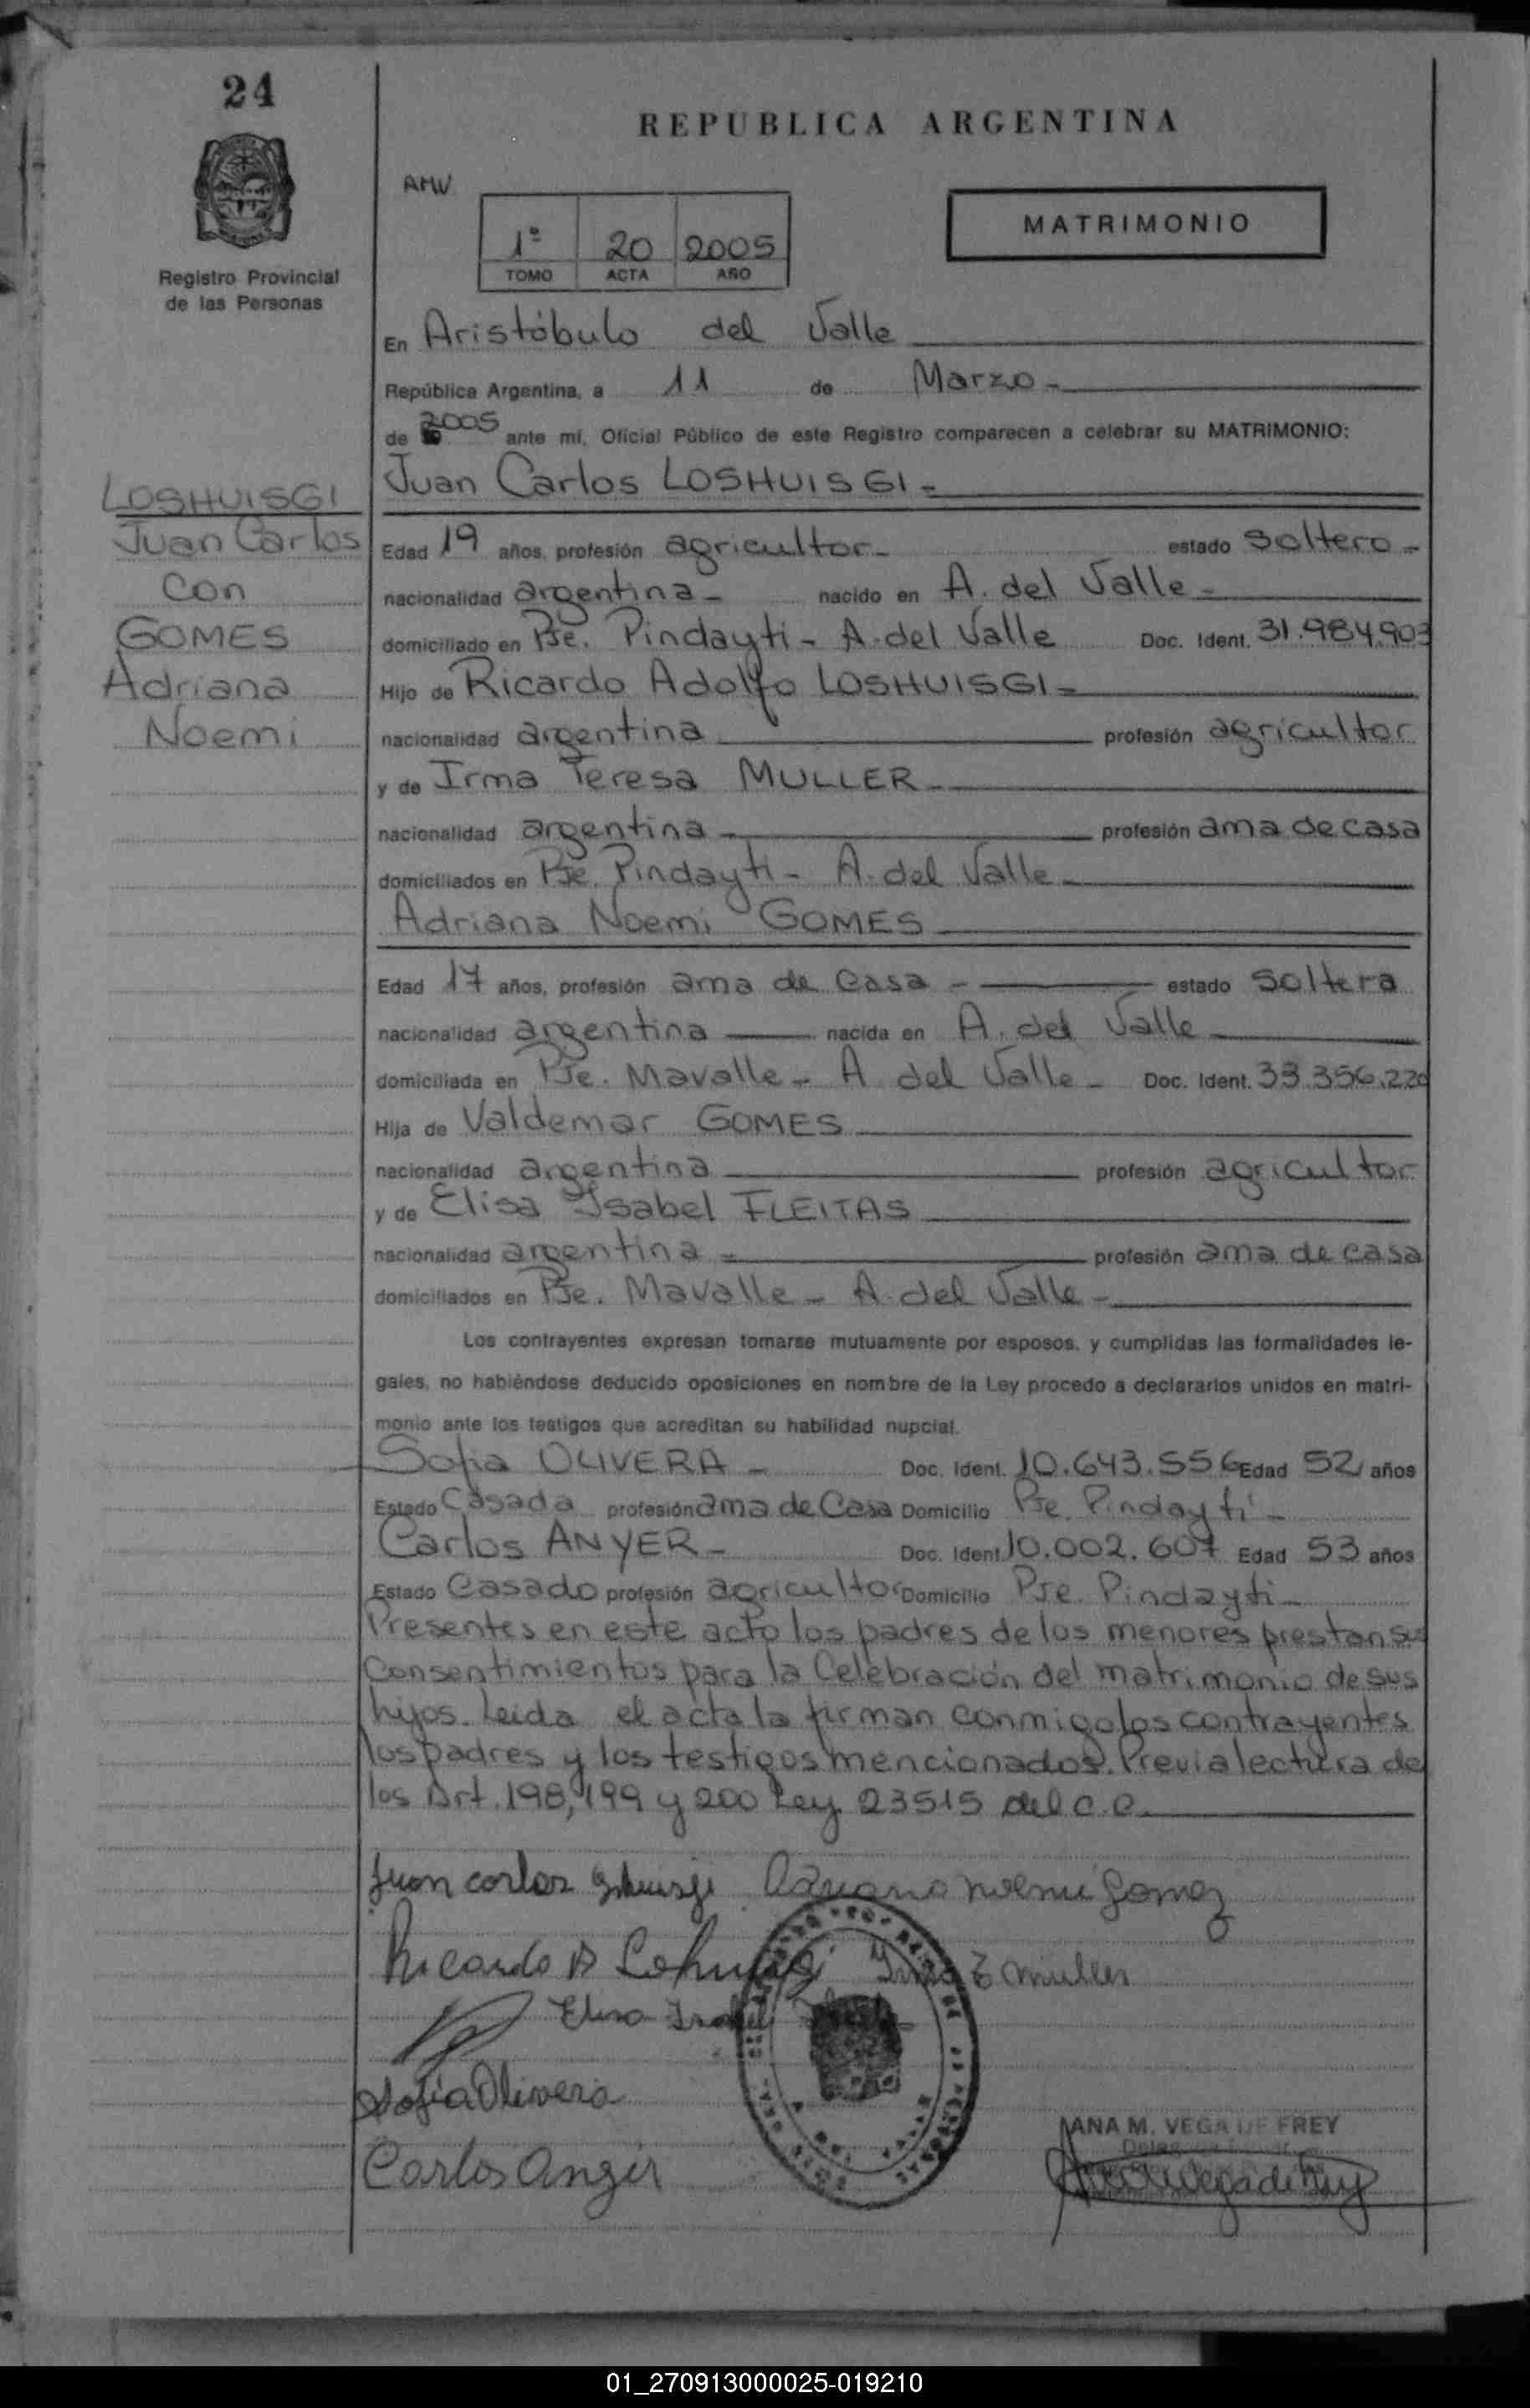 24
REPUBLICA ARGENTINA
AMV
MATRIMONIO
1º 20 2005
TOMO ACTA AÑO
Registro Provincial
de las Personas
En Aristóbulo del Valle
República Argentina, a 11 de Marzo -
de 2005 ante mí, Oficial Público de este Registro comparecen a celebrar su MATRIMONIO:
Juan Carlos LOSHUISGI -
LOSHUISGI
Juan Carlos
con
GOMES
Adriana
Noemi
Edad 19 años, profesión agricultor - estado soltero -
nacionalidad argentina - nacido en A. del Valle -
domiciliado en Pje. Pindayti - A. del Valle Doc. Ident. 31.984.903
Hijo de Ricardo Adolfo LOSHUISGI -
nacionalidad argentina profesión agricultor
y de Irma Teresa MULLER -
nacionalidad argentina - profesión ama de casa
domiciliados en Pje. Pindayti - A. del Valle -
Adriana Noemi GOMES
Edad 17 años, profesión ama de casa - estado soltera
nacionalidad argentina nacida en A. del Valle
domiciliada en Pje. Mavalle - A del Valle - Doc. Ident. 33.356.220
Hija de Valdemar GOMES
nacionalidad argentina profesión agricultor
y de Elisa Ysabel FLEITAS
nacionalidad argentina - profesión ama de casa
domiciliados en Pje. Mavalle - A. del Valle -
Los contrayentes expresan tomarse mutuamente por esposos, y cumplidas las formalidades le-
gales, no habiéndose deducido oposiciones en nombre de la Ley procedo a declararlos unidos en matri-
monio ante los testigos que acreditan su habilidad nupcial.
Sofia OLIVERA - Doc. Ident. 10.643.556 Edad 52 años
Estado Casada profesión ama de Casa Domicilio Pje. Pindayti -
Carlos ANYER - Doc. Ident. 10.002.607 Edad 53 años
Estado Casado profesión agricultor Domicilio Pje. Pindayti -
Presentes en este acto los padres de los menores prestan sus
Consentimientos para la Celebración del matrimonio de sus
hijos. Leida el acta la firman conmigo los contrayentes
los padres y los testigos mencionados. Previa lectura de
los Art. 198, 199 y 200 Ley 23515 del C.C.
Juan carlos Adriana noemi Gomez
Ricardo A Irma T muller
Elisa Isabel
Sofia Olivera
Carlos
ANA M. VEGA DE FREY
01_270913000025-019210